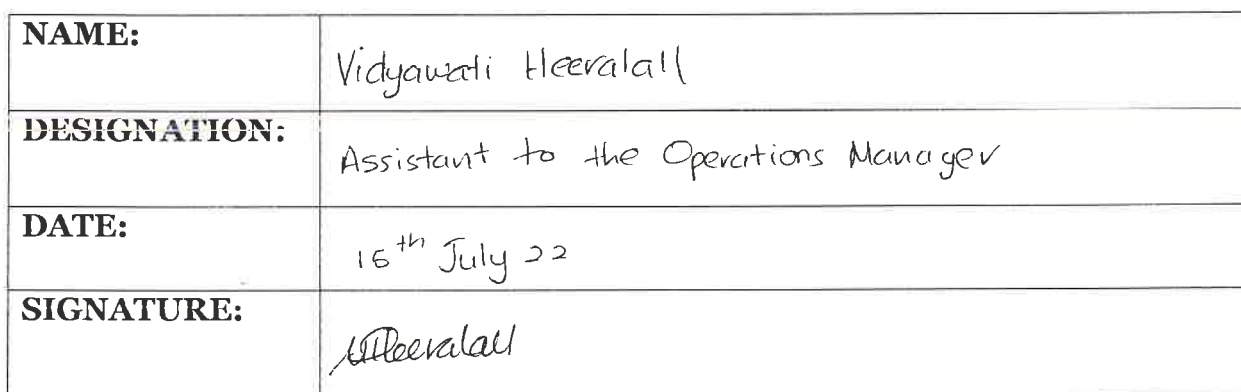 NAME:
Vidyawati Heeralall
DESIGNATION:
Assistant to the Operations Manager
DATE:
15th July 22
SIGNATURE:
VHeeralall